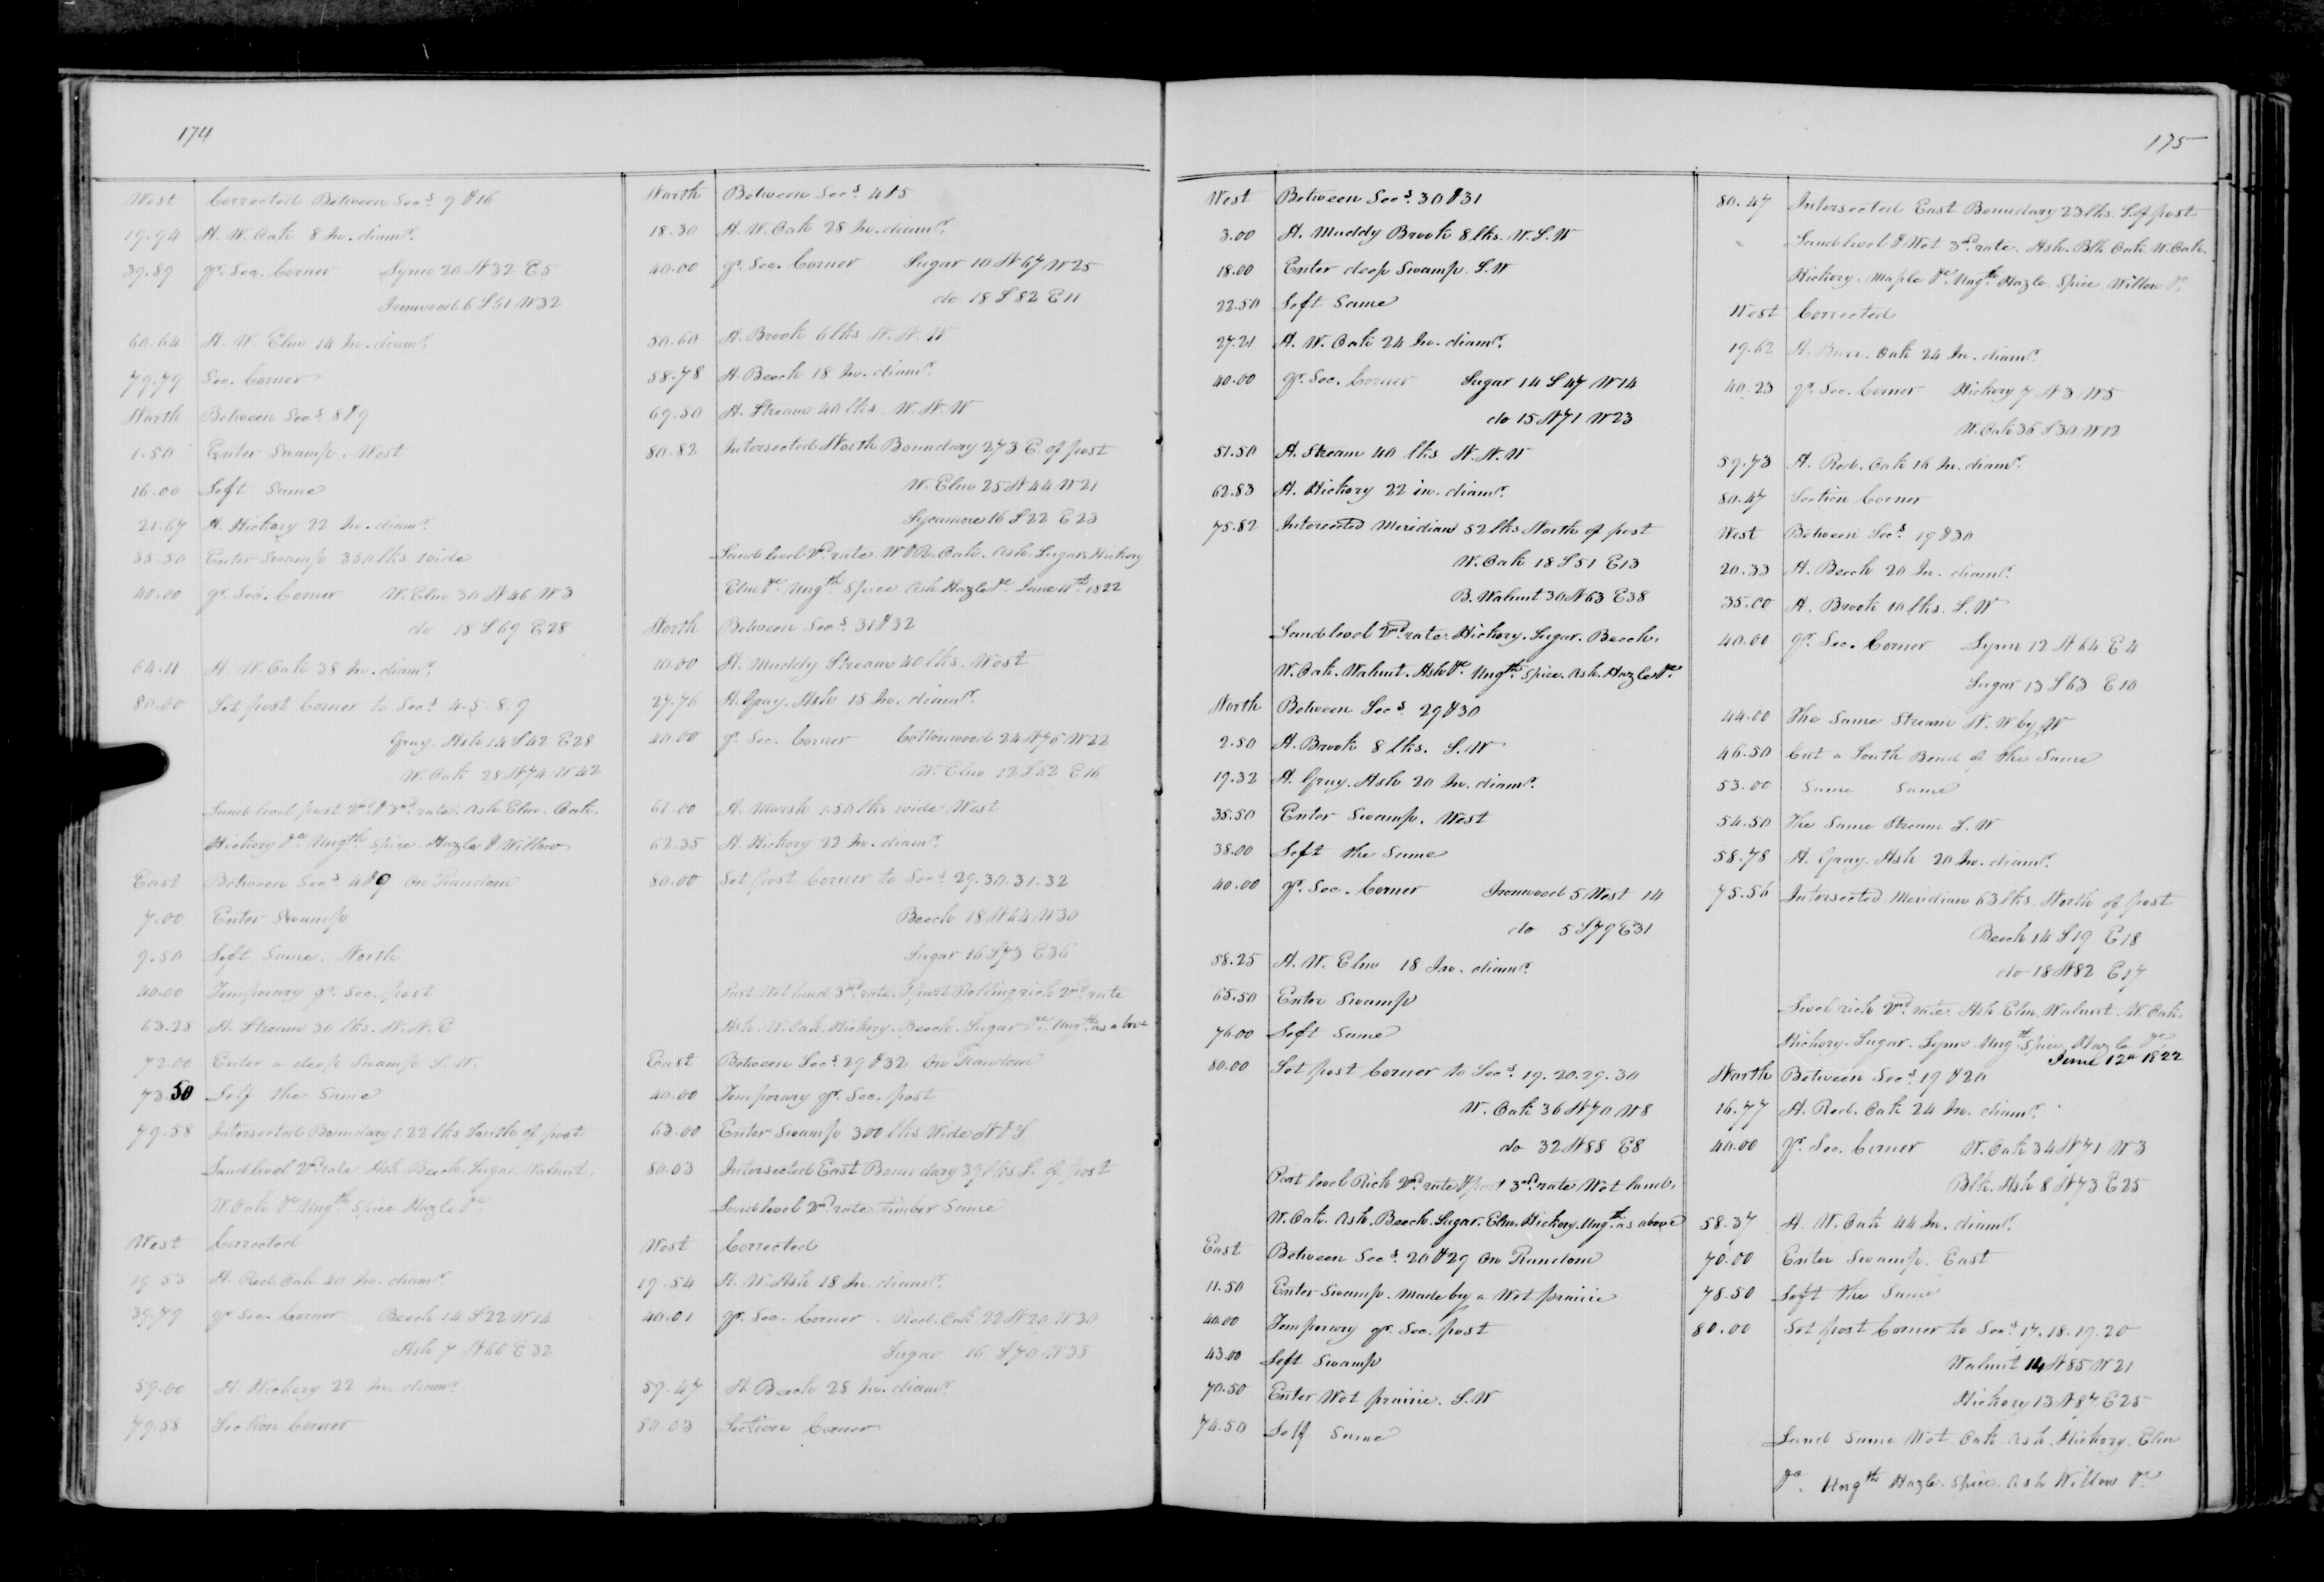 174
West Corrected Between Secs. 9 & 16
19.94 A. W. Oak 8 In. diamr.
39.89 qr. Sec. Corner Lynn 20 N 32 E 5
Ironwood 6 S 61 W 32
60.64 A. W. Elm 14 In. diamr.
79.79 Sec. Corner
North Between Secs. 8 & 9
1.50 Enter Swamp. West
16.00 Left Same
21.67 A. Hickory 22 In. diamr.
35.50 Enter Swamp 350 lks wide
40.00 qr. Sec. Corner W. Elm 30 N 46 W 3
do 18 S 69 E 28
64.11 A. W. Oak 38 In. diamr.
80.00 Set post Corner to Secs. 4. 5. 8. 9
Gray. Ash 14 S 42 E 28
W. Oak 28 N 74 W 42
Land level part 2nd. & 3rd. rate. Ash Elm. Oak.
Hickory &c Ungth Spice. Hazle & Willow
East Between Secs. 4 & 9 on Random
7.00 Enter Swamp
9.50 Left Same. North
40.00 Temporary qr. Sec. post
63.25 A. Stream 30 lks. N. N. E
72.00 Enter a deep Swamp S. W.
73.50 Left the Same
79.58 Intersected Boundary 1.22 lks South of post
Land level 2nd rate Ash. Beech. Sugar. Walnut.
W. Oak &c Ungth Spice. Hazle &c
West Corrected
19.53 A. Red. Oak 40 In. diamr.
39.79 qr. Sec. Corner Beech 14 S 22 W 14
Ash 7 N 66 E 32
59.00 A. Hickory 22 In. diamr.
79.58 Section Corner
North Between Secs. 4 & 5
18.30 A. W. Oak 28 In. diamr.
40.00 qr. Sec. Corner Sugar 10 N 67 W 25
do 18 S 82 E 11
50.60 A. Brook 6 lks N. N. W
58.78 A. Beech 18 In. diamr.
69.50 A. Stream 40 lks. W. N. W
80.82 Intersected North Boundary 273 E. of post
W. Elm 25 N 44 W 21
Sycamore 16 S 22 E 23
Land level 2nd. rate W & R. Oak. Ash. Sugar. Hickory
Elm &c Ungth Spice Ash Hazle &c. June 11th. 1822
North Between Secs. 31 & 32
10.00 A. Muddy Stream 40 lks. West
27.76 A. Gray. Ash 15 In. diamr.
40.00 qr. Sec. Corner Cottonwood 24 N 76 W 22
W. Elm 12 S 62 E 16
61.00 A. Marsh 1.50 lks wide West
62.35 A. Hickory 22 In. diamr.
80.00 Set post Corner to Secs. 29. 30. 31. 32
Beech 18 N 64 W 30
Sugar 16 S 73 E 36
Part Wet land 3rd. rate. & part Rolling rich 2nd. rate
Ash. W. Oak. Hickory. Beech. Sugar &c. Ungth as above
East Between Secs. 29 & 32 On Random
40.00 Temporary qr. Sec. post
63.00 Enter Swamp 300 lks Wide N & S
80.03 Intersected East Boundary 39 lks S. of post
Land level 2nd. rate timber Same
West Corrected
19.54 A. W. Ash 18 In. diamr.
40.01 qr. Sec. Corner. Red. Oak 22 N 20 W 30
Sugar 16 S 70 W 38
59.47 A. Beech 28 In. diamr.
80.03 Section Corner
175
West Between Secs. 30 & 31
3.00 A. Muddy Brook 8 lks. W. S. W
18.00 Enter deep Swamp. S. W
22.50 Left Same
27.21 A. W. Oak 24 In. diamr.
40.00 qr. Sec. Corner Sugar 14 S 47 W 14
do 15 N 71 W 23
51.50 A. Stream 40 lks N. N. W
62.83 A. Hickory 22 in. diamr.
75.82 Intersected Meridian 52 lks North of post
W. Oak 18 S 51 E 13
B. Walnut 30 N 63 E 38
Land level 2nd. rate. Hickory. Sugar. Beech.
W. Oak. Walnut. Ash &c. Ungth. Spice. Ash. Hazle &c.
North Between Secs. 29 & 30
2.50 A. Brook 8 lks. S. W
19.32 A. Gray. Ash 20 In. diamr.
35.50 Enter Swamp. West
38.00 Left the Same
40.00 qr. Sec. Corner Ironwood 5 West 14
do 5 S 79 E 31
58.25 A. W. Elm 18 In. diamr.
65.50 Enter Swamp
76.00 Left Same
80.00 Set post Corner to Secs. 19. 20. 29. 30
W. Oak 36 N 70 W 8
do 32 N 88 E 8
Part level Rich 2nd. rate & part 3rd. rate Wet land.
W. Oak. Ash. Beech. Sugar. Elm. Hickory. Ungth. as above
East Between Secs. 20 & 29 On Random
11.50 Enter Swamp. Made by a Wet prairie
40.00 Temporary qr. Sec. post
43.00 Left Swamp
70.50 Enter Wet prairie. S. W
74.50 Left Same
80.47 Intersected East Boundary 23 lks. S. of post
Land level & Wet 3rd. rate. Ash. Blk. Oak. W. Oak.
Hickory. Maple &c. Ungth Hazle. Spice. Willow &c.
West Corrected
19.62 A. Burr. Oak 24 In. diamr.
40.23 qr. Sec. Corner Hickory 7 N 3 W 5
W. Oak 36 S 30 W 12
59.73 A. Red. Oak 16 In. diamr.
80.47 Section Corner
West Between Secs. 19 & 30
20.33 A. Beech 20 In. diamr.
35.00 A. Brook 10 lks. S. W
40.00 qr. Sec. Corner Lynn 12 N 64 E 4
Sugar 13 S 63 E 10
44.00 The Same Stream N. W by W
46.50 Cut a South Bend of the Same
53.00 Same Same
54.50 The Same Stream S. W
58.78 A. Gray. Ash 20 In. diamr.
75.56 Intersected Meridian 63 lks. North of post
Beech 14 S 19 E 18
do 18 N 82 E 17
Level rich 2nd. rate. Ash. Elm. Walnut. W. Oak.
Hickory. Sugar. Lynn. Ungth Spice. Hazle &c
June 12th 1822
North Between Secs. 19 & 20
16.77 A. Red. Oak 24 In. diamr.
40.00 qr. Sec. Corner W. Oak 34 N 71 W 3
Blk. Ash 8 N 73 E 25
58.37 A. W. Oak 44 In. diamr.
70.00 Enter Swamp. East
78.50 Left the Same
80.00 Set post Corner to Secs. 17. 18. 19. 20
Walnut 14 N 85 W 21
Hickory 13 N 87 E 25
Land Same Wet Oak. Ash. Hickory. Elm
&c. Ungth Hazle. Spice. Ash Willow &c.